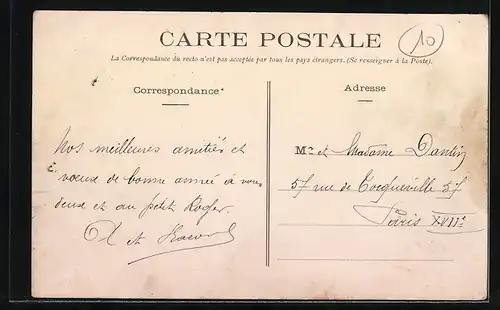 CARTE POSTALE
10
La Correspondance du recto n'est pas acceptée par tous les pays étrangers. (Se renseigner à la Poste).
Correspondance
Nos meilleures amitiés et
voeux de bonne année à vous
deux et au petit Roger.
et
Adresse
M. et Madame Dantin
57 rue de Tocqueville 57
Paris XVIIe